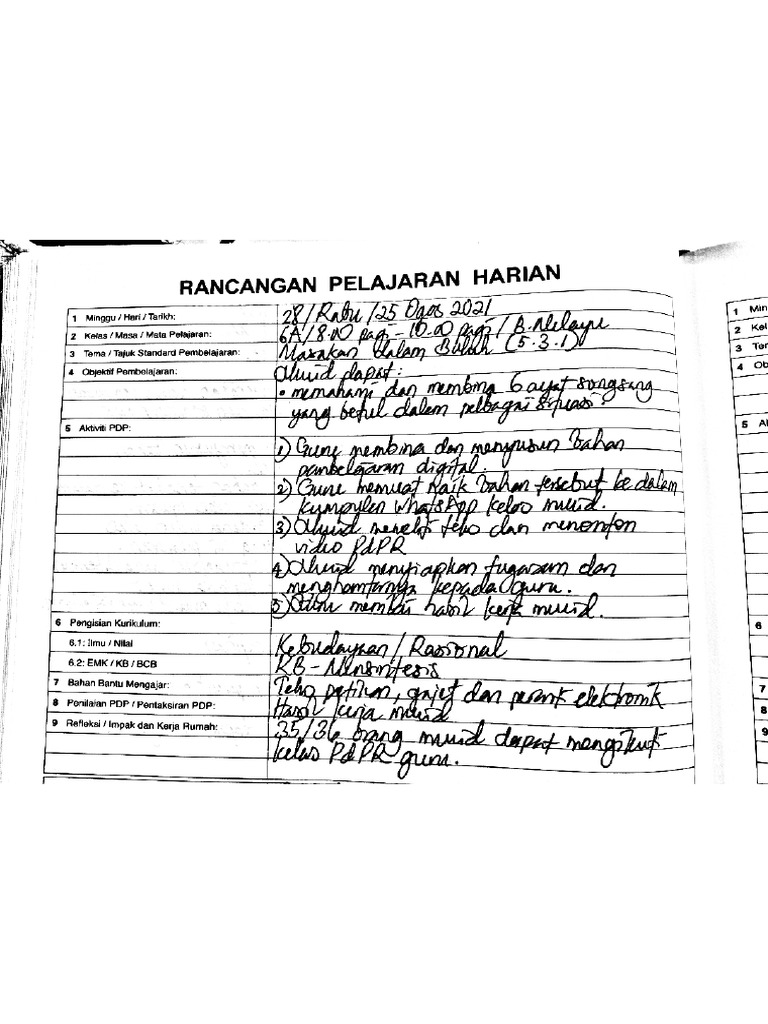 RANCANGAN PELAJARAN HARIAN
1 Minggu / Hari / Tarikh: 28/Rabu/25 Ogos 2021
2 Kelas / Masa / Mata Pelajaran: 6A/8.00 pagi - 10.00 pagi / B. Melayu
3 Tema / Tajuk Standard Pembelajaran: Masakan dalam Buluh (5.3.1)
4 Objektif Pembelajaran: Murid dapat:
• memahami dan membina 6 ayat songsang
yang betul dalam pelbagai situasi.
5 Aktiviti PDP:
1) Guru membina dan menyusun bahan
pembelajaran digital.
2) Guru memuat naik bahan tersebut ke dalam
kumpulan WhatsApp kelas murid.
3) Murid meneliti teks dan menonton
video PdPR
4) Murid menyiapkan tugasan dan
menghantarnya kepada guru.
5) Guru hasil kerja murid.
6 Pengisian Kurikulum:
6.1: Ilmu / Nilai Kebudayaan / Rasional
6.2: EMK / KB / BCB KB - Mensintesis
7 Bahan Bantu Mengajar: Teks petikan, grafik dan peranti elektronik
8 Penilaian PDP / Pentaksiran PDP: Hasil kerja murid
9 Refleksi / Impak dan Kerja Rumah: 35/36 orang murid dapat mengikuti
kelas PdPR guru.
1 Min
2 Kel
3 Ter
4 Ob
5 Ak
6
7
8
9